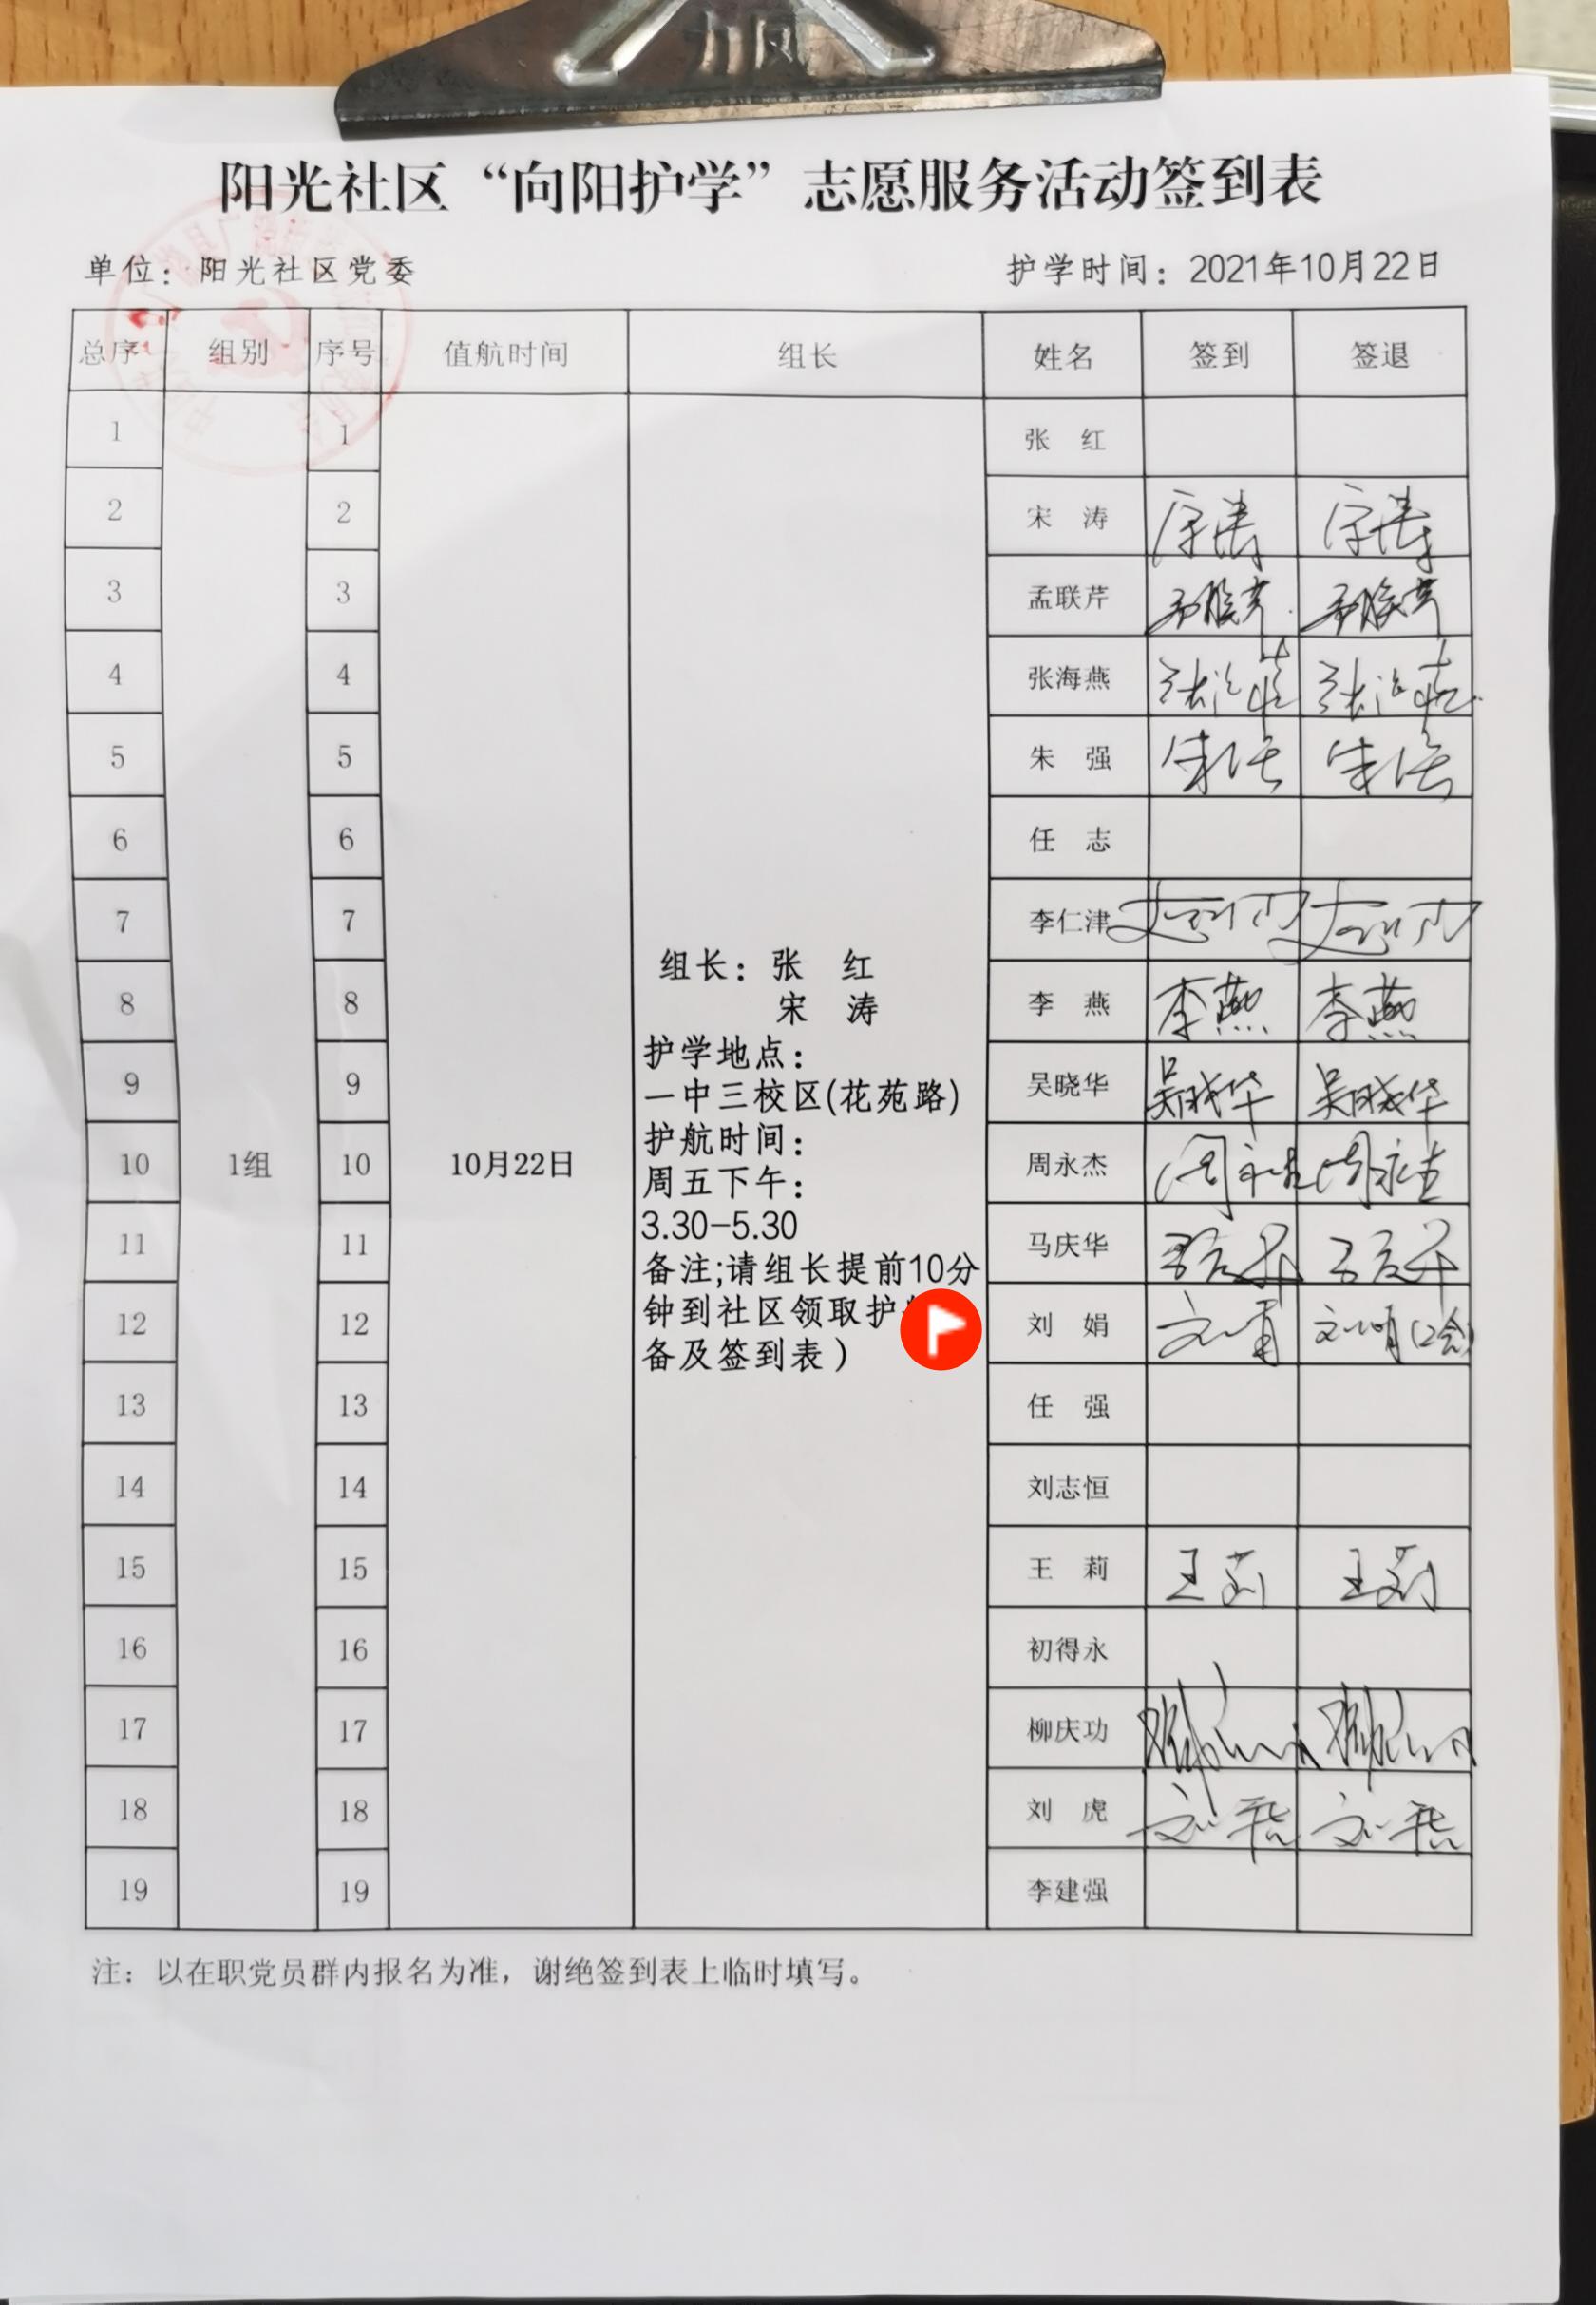 阳光社区“向阳护学”志愿服务活动签到表
单位：阳光社区党委 护学时间：2021年10月22日
总序 组别 序号 值航时间 组长 姓名 签到 签退
1 1 张 红
2 2 宋 涛 宋涛 宋涛
3 3 孟联芹 孟联芹 孟联芹
4 4 张海燕 张海燕 张海燕
5 5 朱 强 朱强 朱强
6 6 任 志
7 7 李仁津
8 8 李 燕 李燕 李燕
9 9 吴晓华 吴晓华 吴晓华
10 1组 10 10月22日 周永杰 周永杰 周永杰
11 11 马庆华 马庆华 马庆华
12 12 刘 娟 刘娟 刘娟
13 13 任 强
14 14 刘志恒
15 15 王 莉 王莉 王莉
16 16 初得永
17 17 柳庆功 柳庆功 柳庆功
18 18 刘 虎 刘虎 刘虎
19 19 李建强
组长：张 红
宋 涛
护学地点：
一中三校区(花苑路)
护航时间：
周五下午：
3.30-5.30
备注;请组长提前10分
钟到社区领取护
备及签到表）
注：以在职党员群内报名为准，谢绝签到表上临时填写。